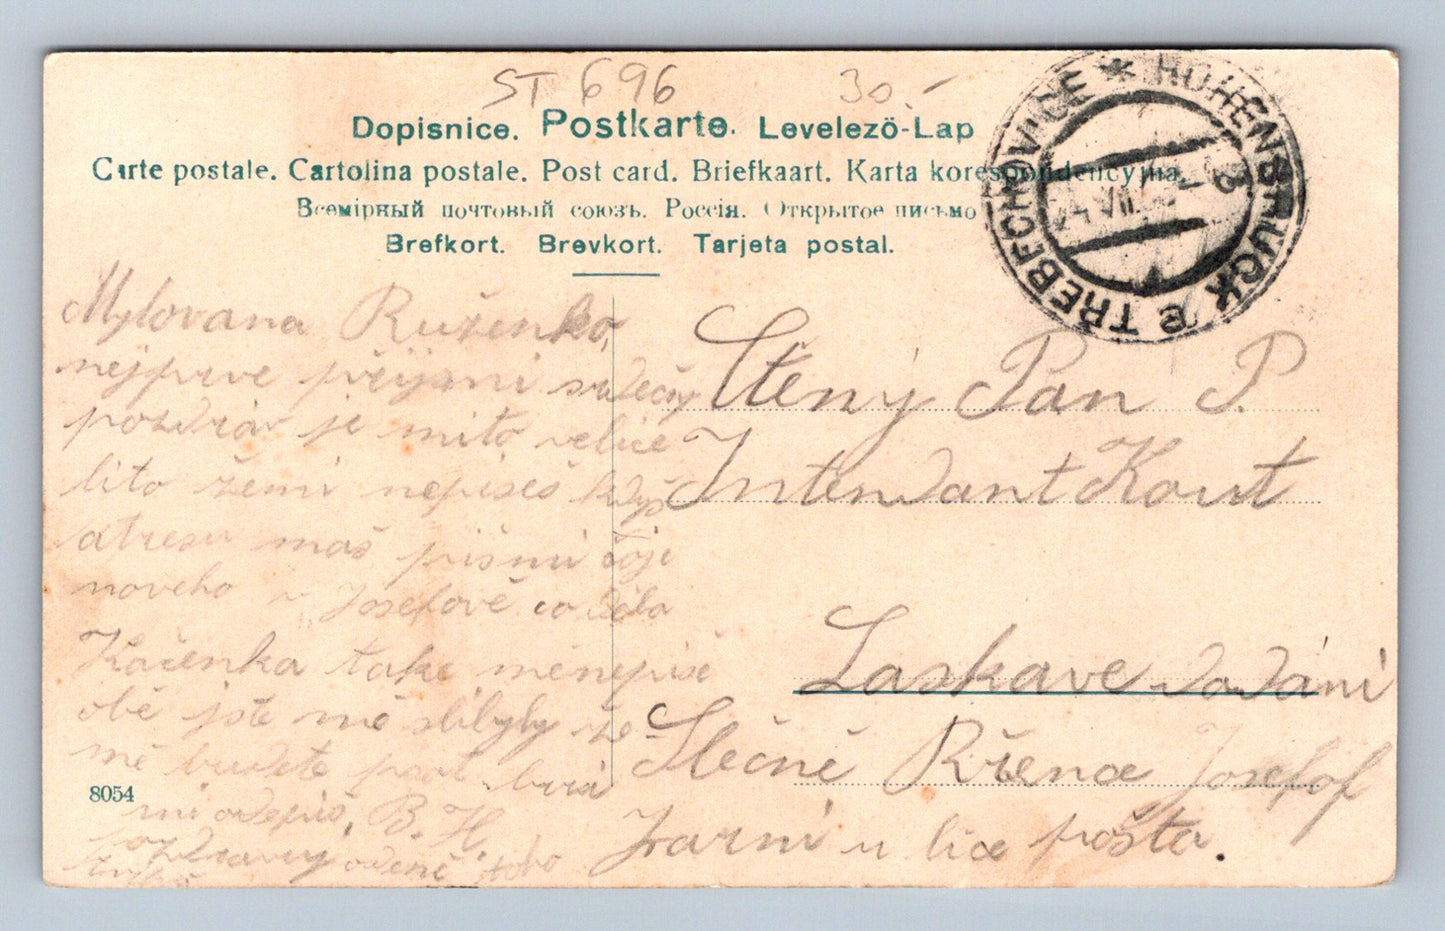 ST 696 30.-
Dopisnice. Postkarte. Levelező-Lap
Carte postale. Cartolina postale. Post card. Briefkaart. Karta korespondencyjna.
Всемірный почтовый союзъ. Россія. Открытое письмо
Brefkort. Brevkort. Tarjeta postal.
HOHENBRUCK * TŘEBECHOVICE
Mylovana Ruženko,
nejprve přijmi srdečny
pozdrav je mito velice
lito žemi nepíseš když
atresu maš pišmi čoje
noveho v Josefově co děla
Kačenka take měnepiše
obě jste mě slibyly že
mě budete psat brzi
mi odepiš, B. H.
pozdravuj
Ctěny Pan P.
Intendant Kout
Laskavě dodáni
Slečně Ržence Josefof
8054
u lice pošta.